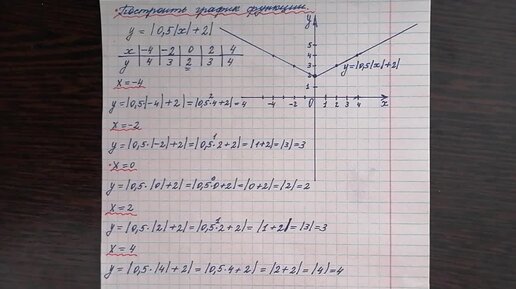 Построить график функции.
y = |0,5|x|+2|
x | -4 | -2 | 0 | 2 | 4
y | 4 | 3 | 2 | 3 | 4
x = -4
y = |0,5|-4|+2| = |0,5·4+2| = 4
x = -2
y = |0,5·|-2|+2| = |0,5·2+2| = |1+2| = |3| = 3
x = 0
y = |0,5·|0|+2| = |0,5·0+2| = |0+2| = |2| = 2
x = 2
y = |0,5·|2|+2| = |0,5·2+2| = |1+2| = |3| = 3
x = 4
y = |0,5·|4|+2| = |0,5·4+2| = |2+2| = |4| = 4
y
5
4
3
2
1
y=|0,5|x|+2|
-4 -2 0 1 2 3 4 x